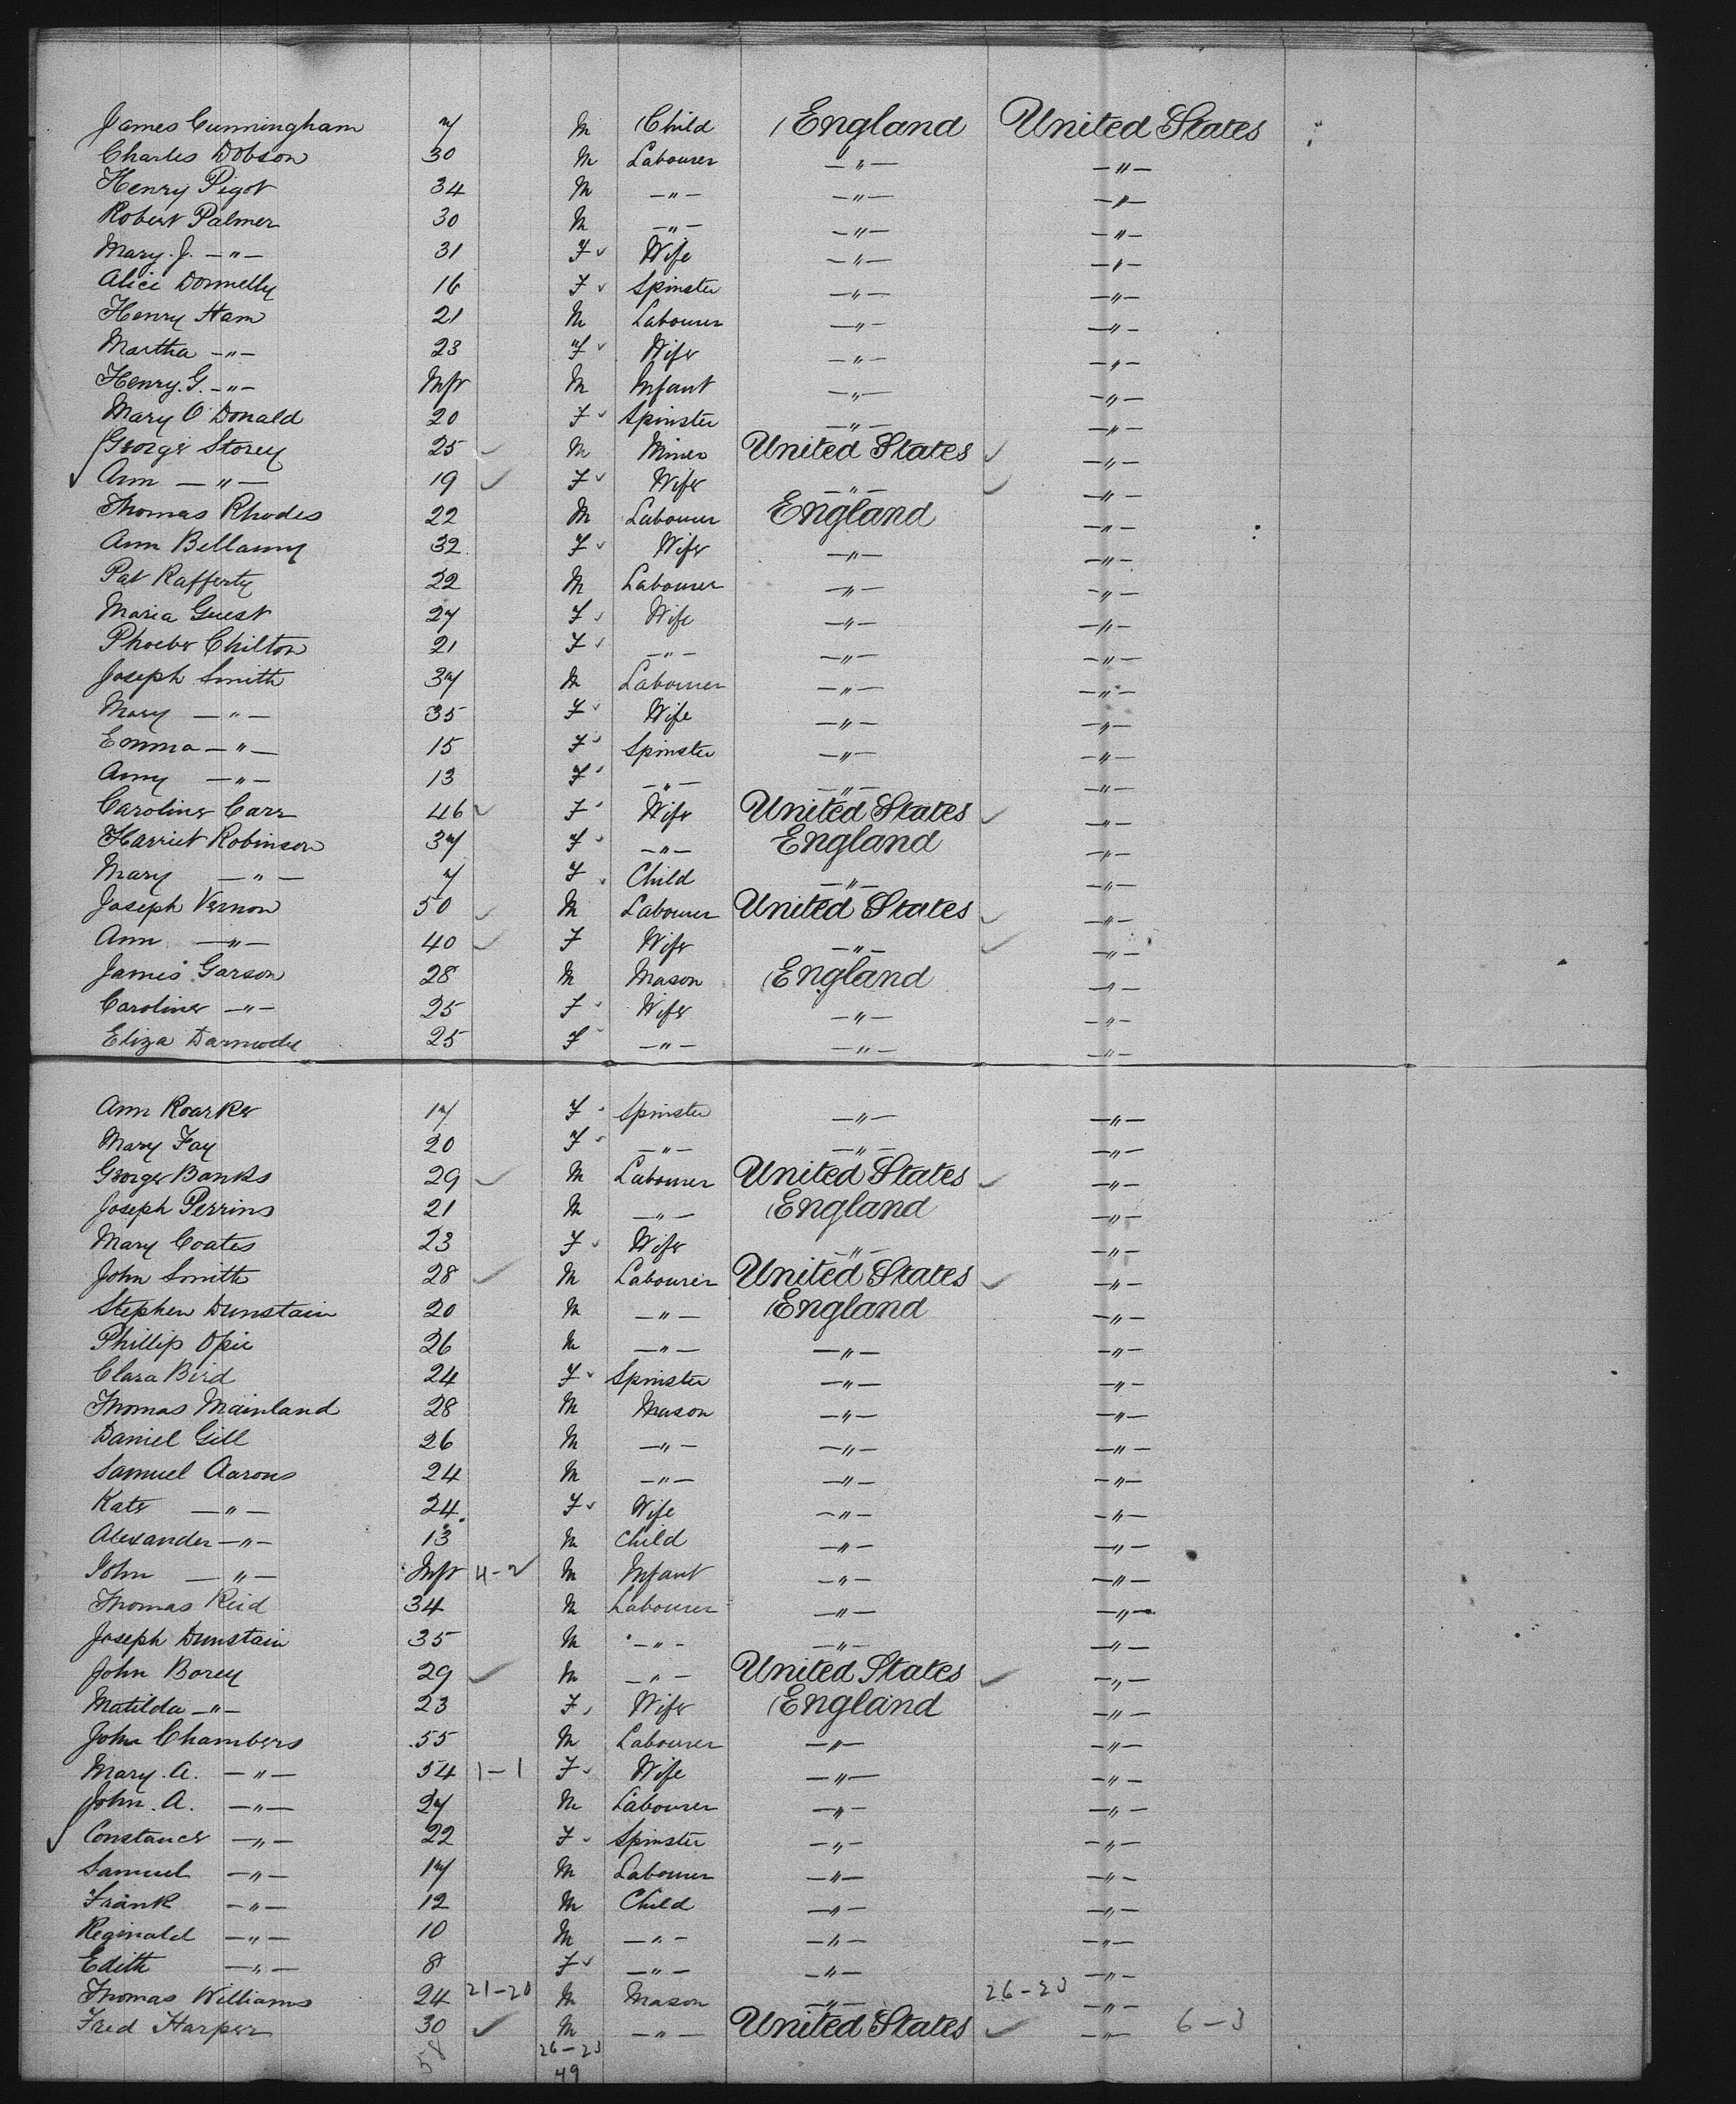 James Cunningham 7 M Child England United States
Charles Dobson 30 M Labourer —"— —"—
Henry Pigot 34 M —"— —"— —"—
Robert Palmer 30 M —"— —"— —"—
Mary. J. —"— 31 F ✓ Wife —"— —"—
Alice Donnelly 16 F ✓ Spinster —"— —"—
Henry Ham 21 M Labourer —"— —"—
Martha —"— 23 F ✓ Wife —"— —"—
Henry. G. —"— Inft M Infant —"— —"—
Mary O Donald 20 F ✓ Spinster —"— —"—
George Storey 25 ✓ M Miner United States ✓ —"—
Ann —"— 19 ✓ F ✓ Wife —"— ✓ —"—
Thomas Rhodes 22 M Labourer England —"—
Ann Bellamy 32 F ✓ Wife —"— —"—
Pat Rafferty 22 M Labourer —"— —"—
Maria Guest 27 F ✓ Wife —"— —"—
Phoebe Chilton 21 F ✓ —"— —"— —"—
Joseph Smith 37 M Labourer —"— —"—
Mary —"— 35 F ✓ Wife —"— —"—
Emma —"— 15 F ✓ Spinster —"— —"—
Amy —"— 13 F ✓ —"— —"— —"—
Caroline Carr 46 ✓ F ✓ Wife United States ✓ —"—
Harriet Robinson 37 F ✓ —"— England —"—
Mary —"— 7 F ✓ Child —"— —"—
Joseph Vernon 50 ✓ M Labourer United States ✓ —"—
Ann —"— 40 ✓ F Wife —"— ✓ —"—
James Garson 28 M Mason England —"—
Caroline —"— 25 F ✓ Wife —"— —"—
Eliza Darmody 25 F ✓ —"— —"— —"—
Ann Roarke 17 F ✓ Spinster —"— —"—
Mary Fay 20 F ✓ —"— —"— —"—
George Banks 29 ✓ M Labourer United States ✓ —"—
Joseph Perrins 21 M —"— England —"—
Mary Coates 23 F ✓ Wife —"— —"—
John Smith 28 ✓ M Labourer United States ✓ —"—
Stephen Dunstain 20 M —"— England —"—
Phillip Opie 26 M —"— —"— —"—
Clara Bird 24 F ✓ Spinster —"— —"—
Thomas Mainland 28 M Mason —"— —"—
Daniel Gill 26 M —"— —"— —"—
Samuel Aarons 24 M —"— —"— —"—
Kate —"— 24 F ✓ Wife —"— —"—
Alexander —"— 13 M Child —"— —"—
John —"— Inft 4-2 M Infant —"— —"—
Thomas Reid 34 M Labourer —"— —"—
Joseph Dunstain 35 M —"— —"— —"—
John Borey 29 ✓ M —"— United States ✓ —"—
Matilda —"— 23 F ✓ Wife England —"—
John Chambers 55 M Labourer —"— —"—
Mary. A. —"— 54 1-1 F ✓ Wife —"— —"—
John. A. —"— 27 M Labourer —"— —"—
Constance —"— 22 F ✓ Spinster —"— —"—
Samuel —"— 17 M Labourer —"— —"—
Frank —"— 12 M Child —"— —"—
Reginald —"— 10 M —"— —"— —"—
Edith —"— 8 F ✓ —"— —"— —"—
Thomas Williams 24 21-20 M Mason —"— 26-23 —"—
Fred Harper 30 ✓ M —"— United States ✓ —"— 6-3
58 26-23
49